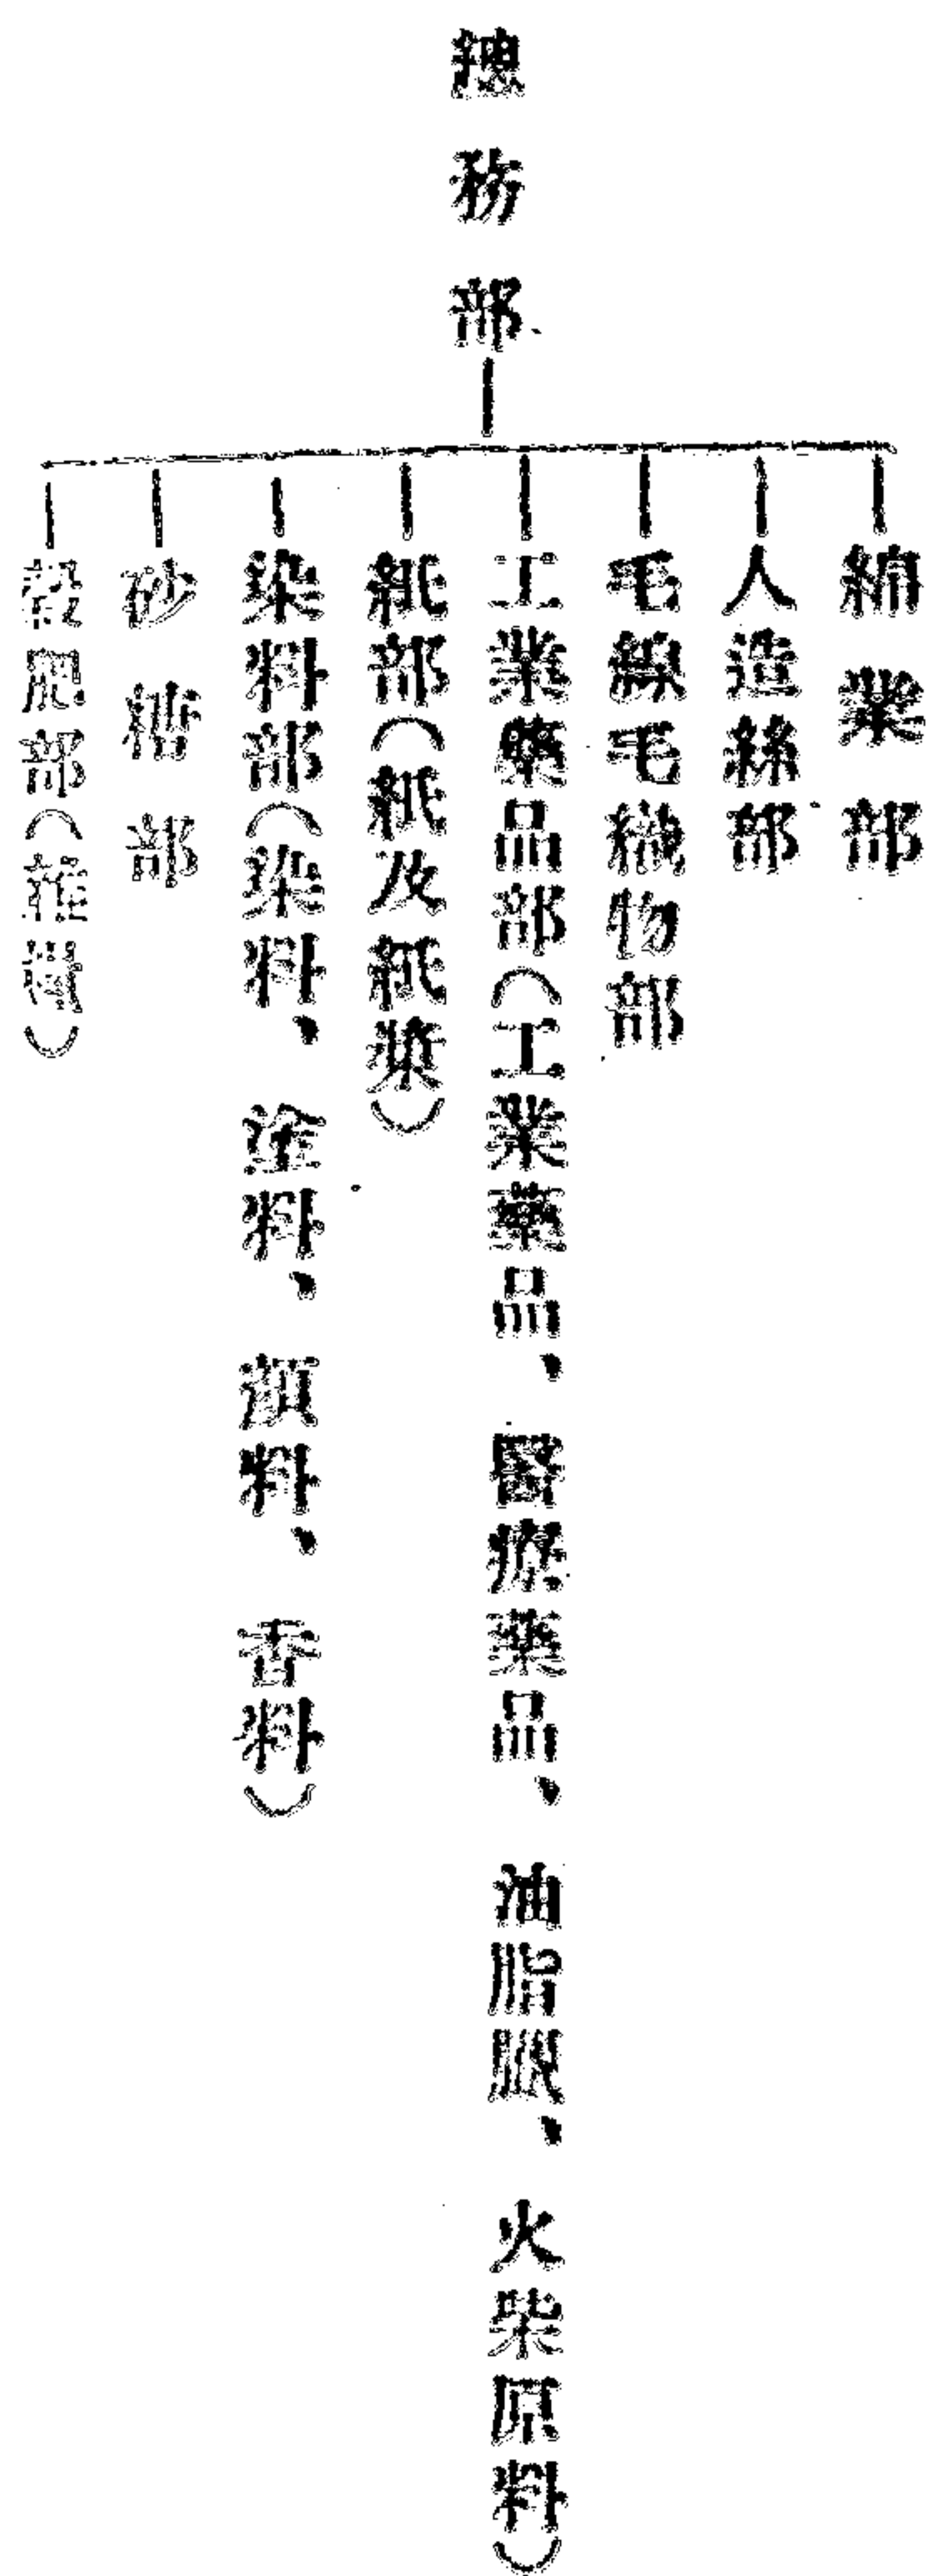 總務部
綿業部
人造絲部
毛線毛織物部
工業藥品部(工業藥品、醫療藥品、油脂臘、火柴原料)
紙部(紙及紙漿)
染料部(染料、塗料、顏料、香料)
砂糖部
穀肥部(雜貨)